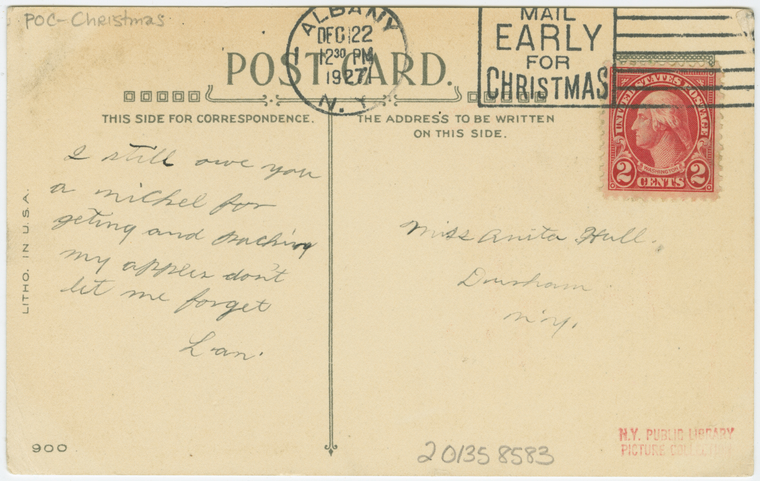 POC-Christmas
ALBANY
DEC 22
12 30 PM
1927
N.Y.
MAIL
EARLY
FOR
CHRISTMAS
POST CARD.
THIS SIDE FOR CORRESPONDENCE.
THE ADDRESS TO BE WRITTEN
ON THIS SIDE.
UNITED STATES POSTAGE
WASHINGTON
2 CENTS 2
I still owe you
a nickel for
geting and packing
my apples don't
let me forget
Miss Anita Hull.
Durham
N.Y.
LITHO. IN U.S.A.
900
201358583
N.Y. PUBLIC LIBRARY
PICTURE COLLECTION